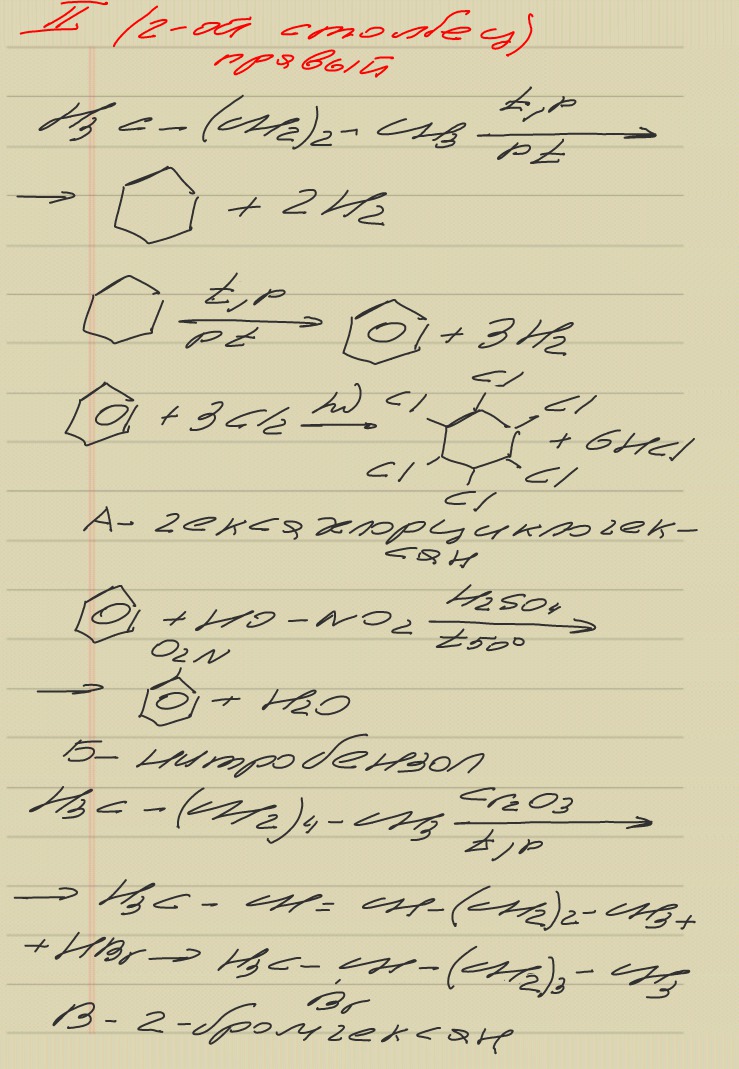 II (2-ой столбец)
правый
H3C-(CH2)2-CH3 t,p Pt →
→ + 2H2
t,p Pt → + 3H2
+ 3Cl2 hν → Cl Cl Cl Cl Cl Cl + 6HCl
А- гексахлорциклогек-
сан
+ HO-NO2 H2SO4 t50° →
→ O2N + H2O
Б- нитробензол
H3C-(CH2)4-CH3 Cr2O3 t,p →
→ H3C-CH=CH-(CH2)2-CH3+
+HBr → H3C-CH-(CH2)3-CH3
Br
В-2-бромгексан